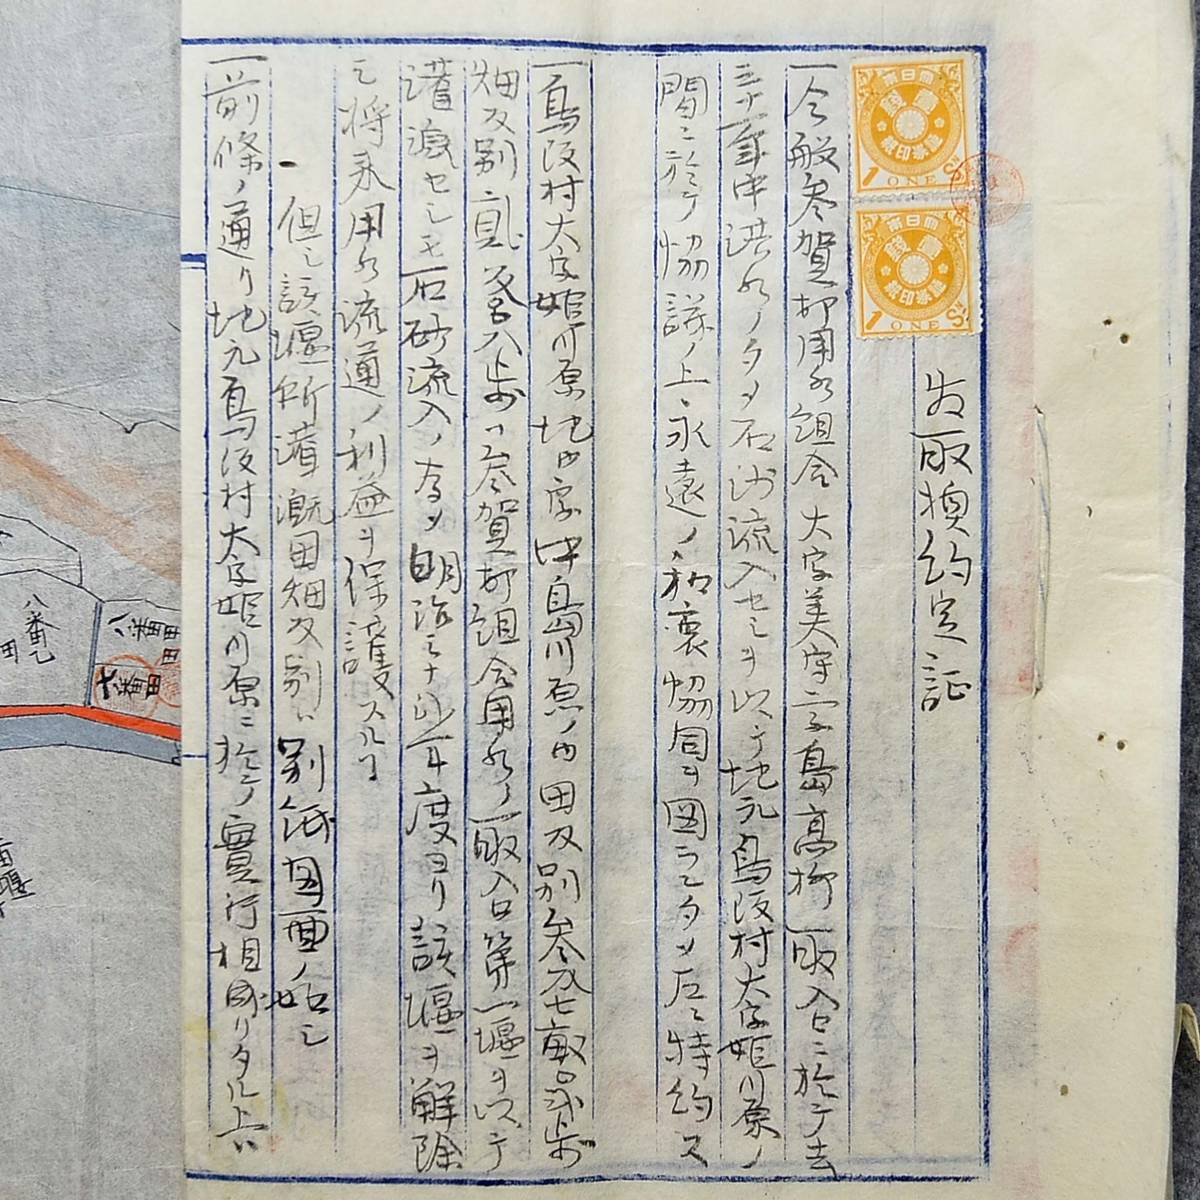 為取換約定証
一今般参賀抑用水組合大字美守字島高柳取入口ニ於テ去
三十一年中洪水ノタメ石沙流入セシヲ以テ地元鳥坂村大字姫川原ノ
間ニ於テ協議ノ上永遠ノ和衷協同ヲ図ランタメ左ニ特約ス
一鳥坂村大字姫川原地内字中島川原ノ内田反別参反七畝弐歩
畑反別
参賀抑組合用水ノ取入口第一堰ヲ以テ
灌漑セシモ石砂流入ノ為メ明治三十
年度ヨリ該堰ヲ解除
シ将来用水流通ノ利益ヲ保護スルヿ
但シ該堰所灌漑田畑反別ハ別紙図面ノ如シ
一前條ノ通リ地元鳥坂村大字姫川原ニ於テ實行相成リタル上ハ
大日本
壹銭
収入印紙
1 ONE Sn
大日本
壹銭
収入印紙
1 ONE Sn
八番乙
田
八番
田
六番
田